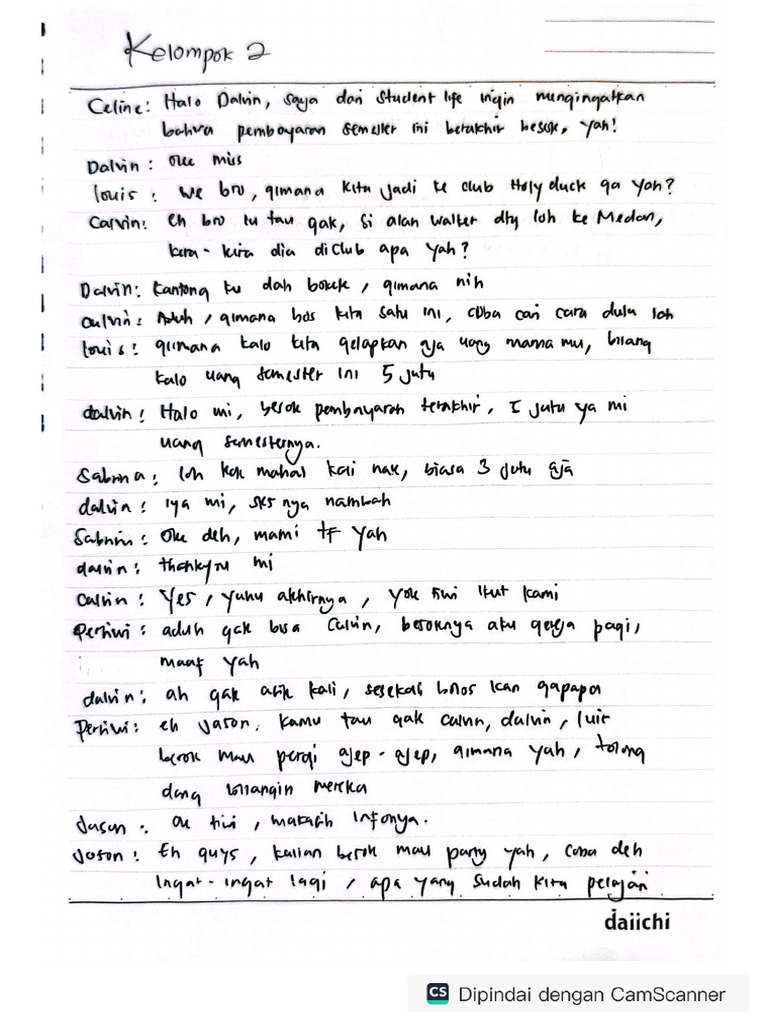 Kelompok 2
Celine: Halo Dalvin, saya dari student life ingin mengingatkan
bahwa pembayaran semester ini berakhir besok, yah!
Dalvin: oke mis
louis: we bro, gimana kita jadi ke club Holy duck ga yah?
Calvin: Eh bro lu tau gak, si alan walker dtg loh ke Medan,
kira-kira dia di club apa yah?
Dalvin: kantong ku dah bokek, gimana nih
calvin: Aduh, gimana bos kita satu ini, coba cari cara dulu lah
louis: gimana kalo kita gelapkan aja uang mama mu, bilang
kalo uang semester ini 5 juta
dalvin: Halo mi, besok pembayaran terakhir, 5 juta ya mi
uang semesternya.
Sabrina: loh kok mahal kali nak, biasa 3 juta aja
dalvin: iya mi, sks nya nambah
Sabrina: Oke deh, mami tf yah
dalvin: thankyou mi
Calvin: Yes, yuhu akhirnya, yok tiwi ikut kami
Pertiwi: aduh gak bisa Calvin, besoknya aku gereja pagi,
maaf yah
dalvin: ah gak asik kali, sesekali bolos kan gapapa
Pertiwi: eh Jason, kamu tau gak calvin, dalvin, luis
besok mau pergi ajep-ajep, gimana yah, tolong
dong bilangin mereka
Jason: ok tiwi, makasih infonya.
Jason: Eh guys, kalian besok mau party yah, coba deh
ingat-ingat lagi, apa yang sudah kita pelajari
daiichi
CS Dipindai dengan CamScanner